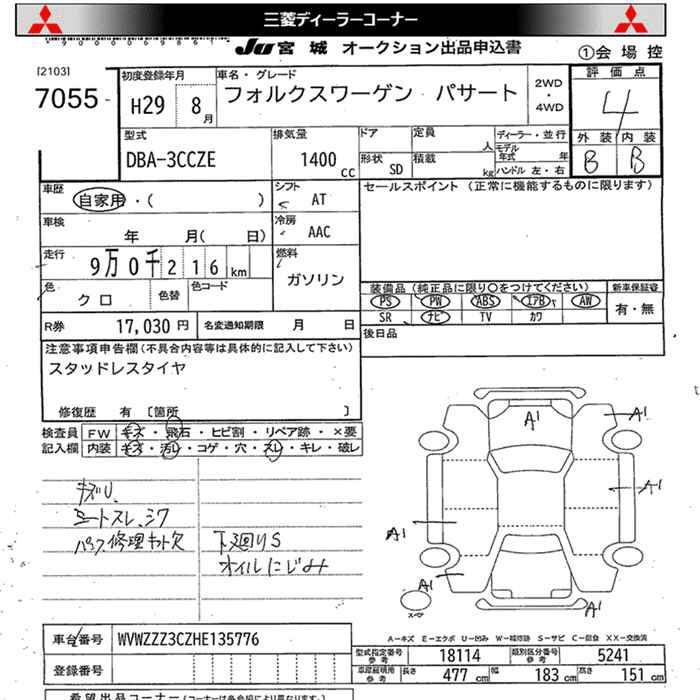 三菱ディーラーコーナー
JU 宮城 オークション出品申込書 ①会場控
[2103]
7055
初度登録年月 H29 8月
車名・グレード フォルクスワーゲン パサート
2WD・4WD
評価点 4
外装 B 内装 B
型式 DBA-3CCZE
排気量 1400cc
ドア
形状 SD
定員 人
積載 kg
ディーラー・並行
モデル年式 年
ハンドル 左・右
車歴 自家用・( )
シフト AT
セールスポイント (正常に機能するものに限ります)
車検 年 月( 日)
冷房 AAC
走行 9万0千216km
燃料 ガソリン
色 クロ
色替
色コード
装備品 (純正品に限り○をつけてください)
新車保証書 有・無
PS PW ABS エアB AW
SR ナビ TV カワ
R券 17,030円
名変通知期限 月 日
後日品
注意事項申告欄 (不具合内容等は具体的に記入して下さい)
スタッドレスタイヤ
修復歴 有 〔箇所 〕
検査員記入欄
FW キズ・飛石・ヒビ割・リペア跡・×要
内装 キズ・汚レ・コゲ・穴・スレ・キレ・破レ
シートスレ、シワ
パンク修理キット欠
下廻りS
オイルにじみ
A1
A1
A1
A1
A1
A1
スペア
車台番号 WVWZZZ3CZHE135776
登録番号
A-キズ E-エクボ U-凹み W-補修跡 S-サビ C-腐食 XX-交換済
型式指定番号 参考 18114
類別区分番号 参考 5241
車庫証明用 参考 長さ 477cm 幅 183cm 高さ 151cm
希望出品コーナー